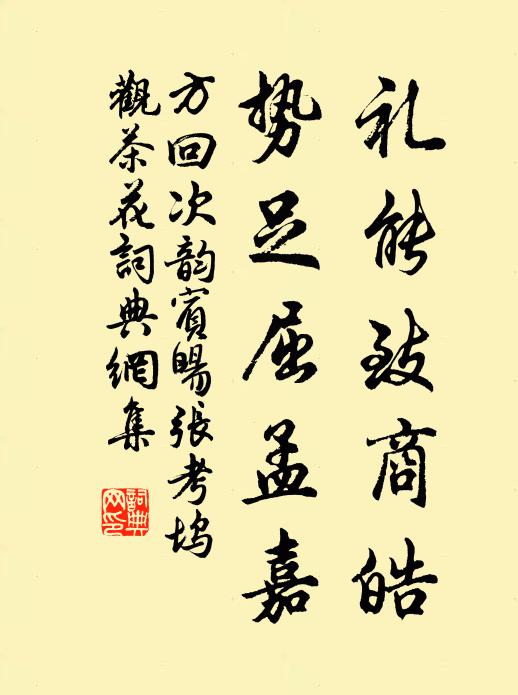 礼能致商皓
势足屈孟嘉
方回次韵宾旸张考坞
觀茶花詞典網集
詞典网印